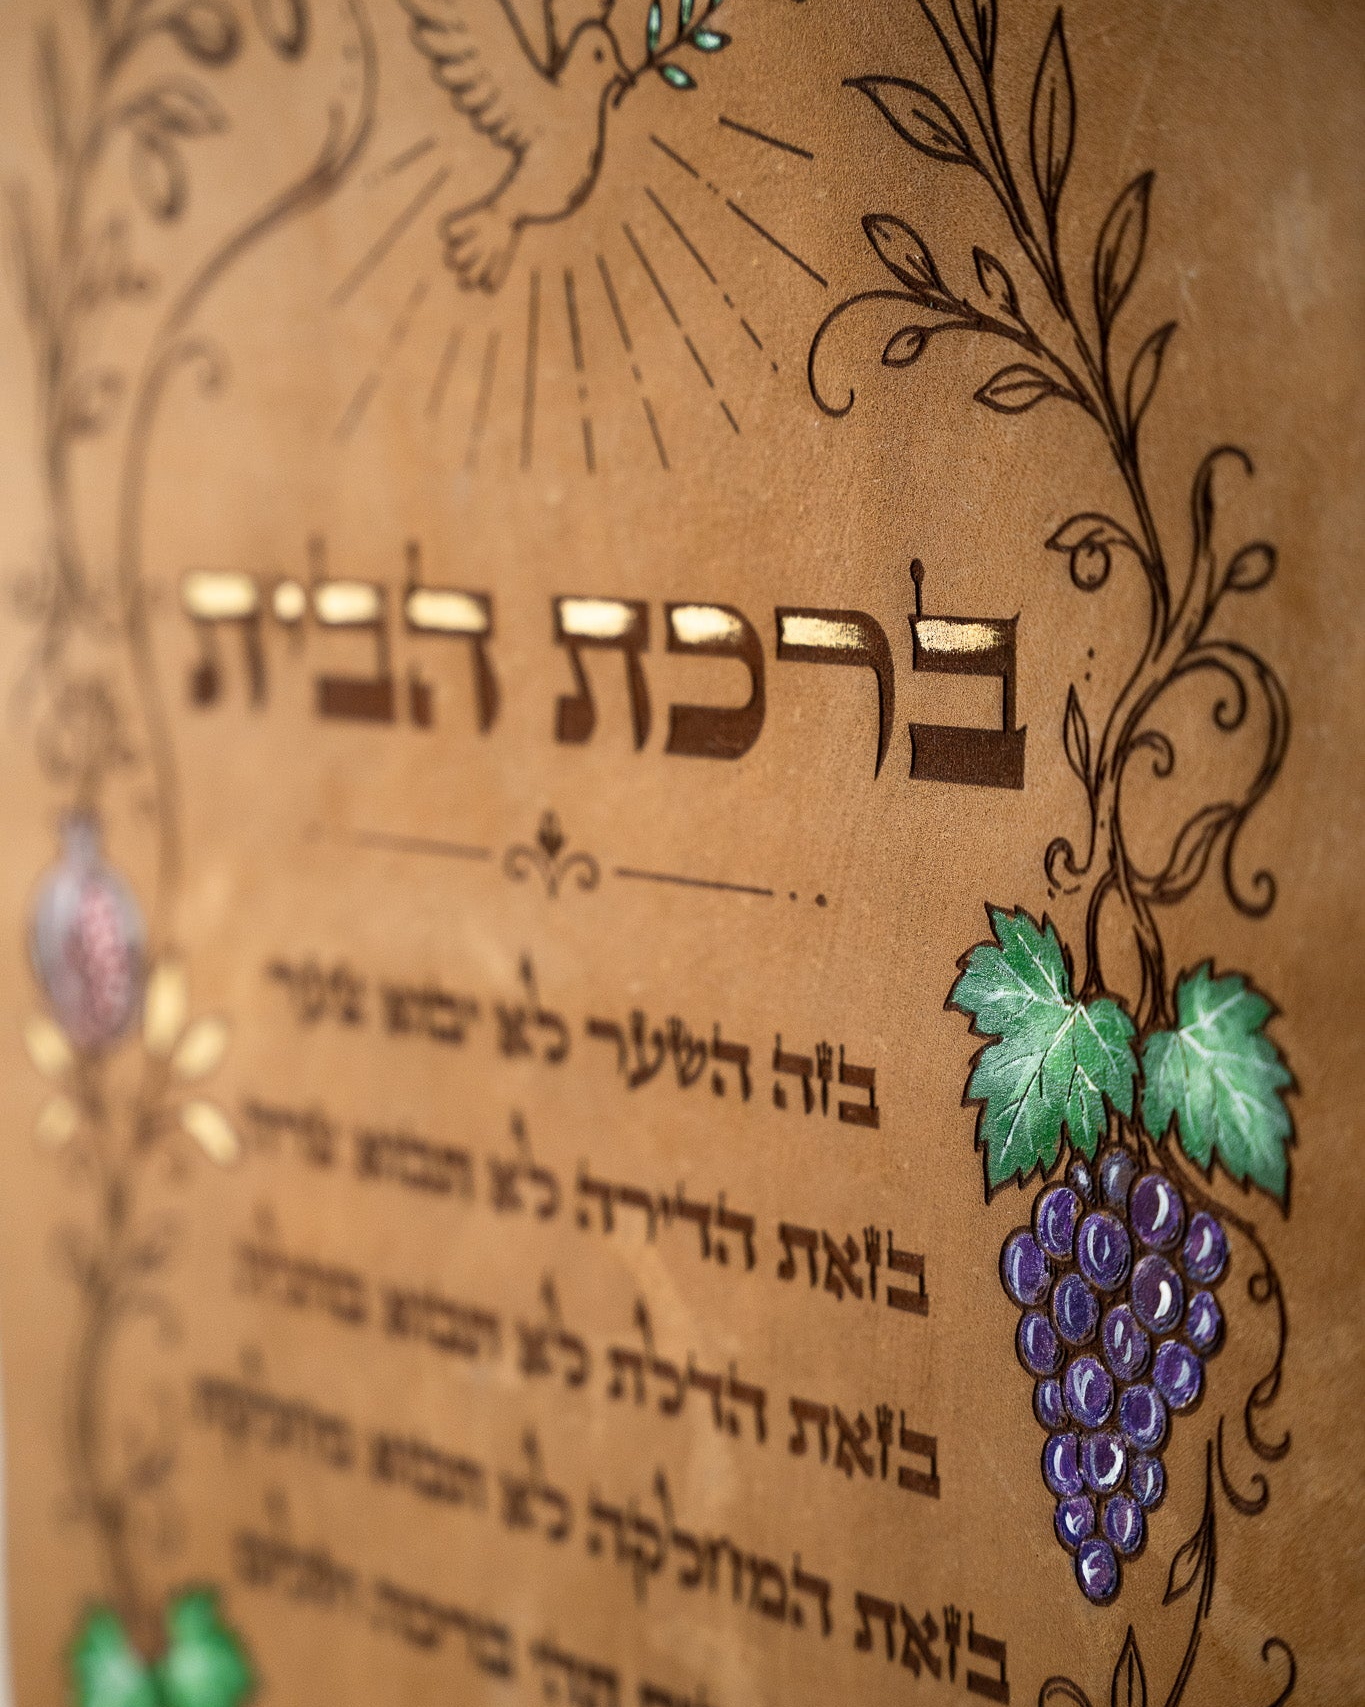 ברכת הבית
בזה השער לא יבוא צער
בזאת הדירה לא תבוא צרה
בזאת הדלת לא תבוא
בזאת המחלקה לא תבוא מחלוקת
תהי ברכה ושלום